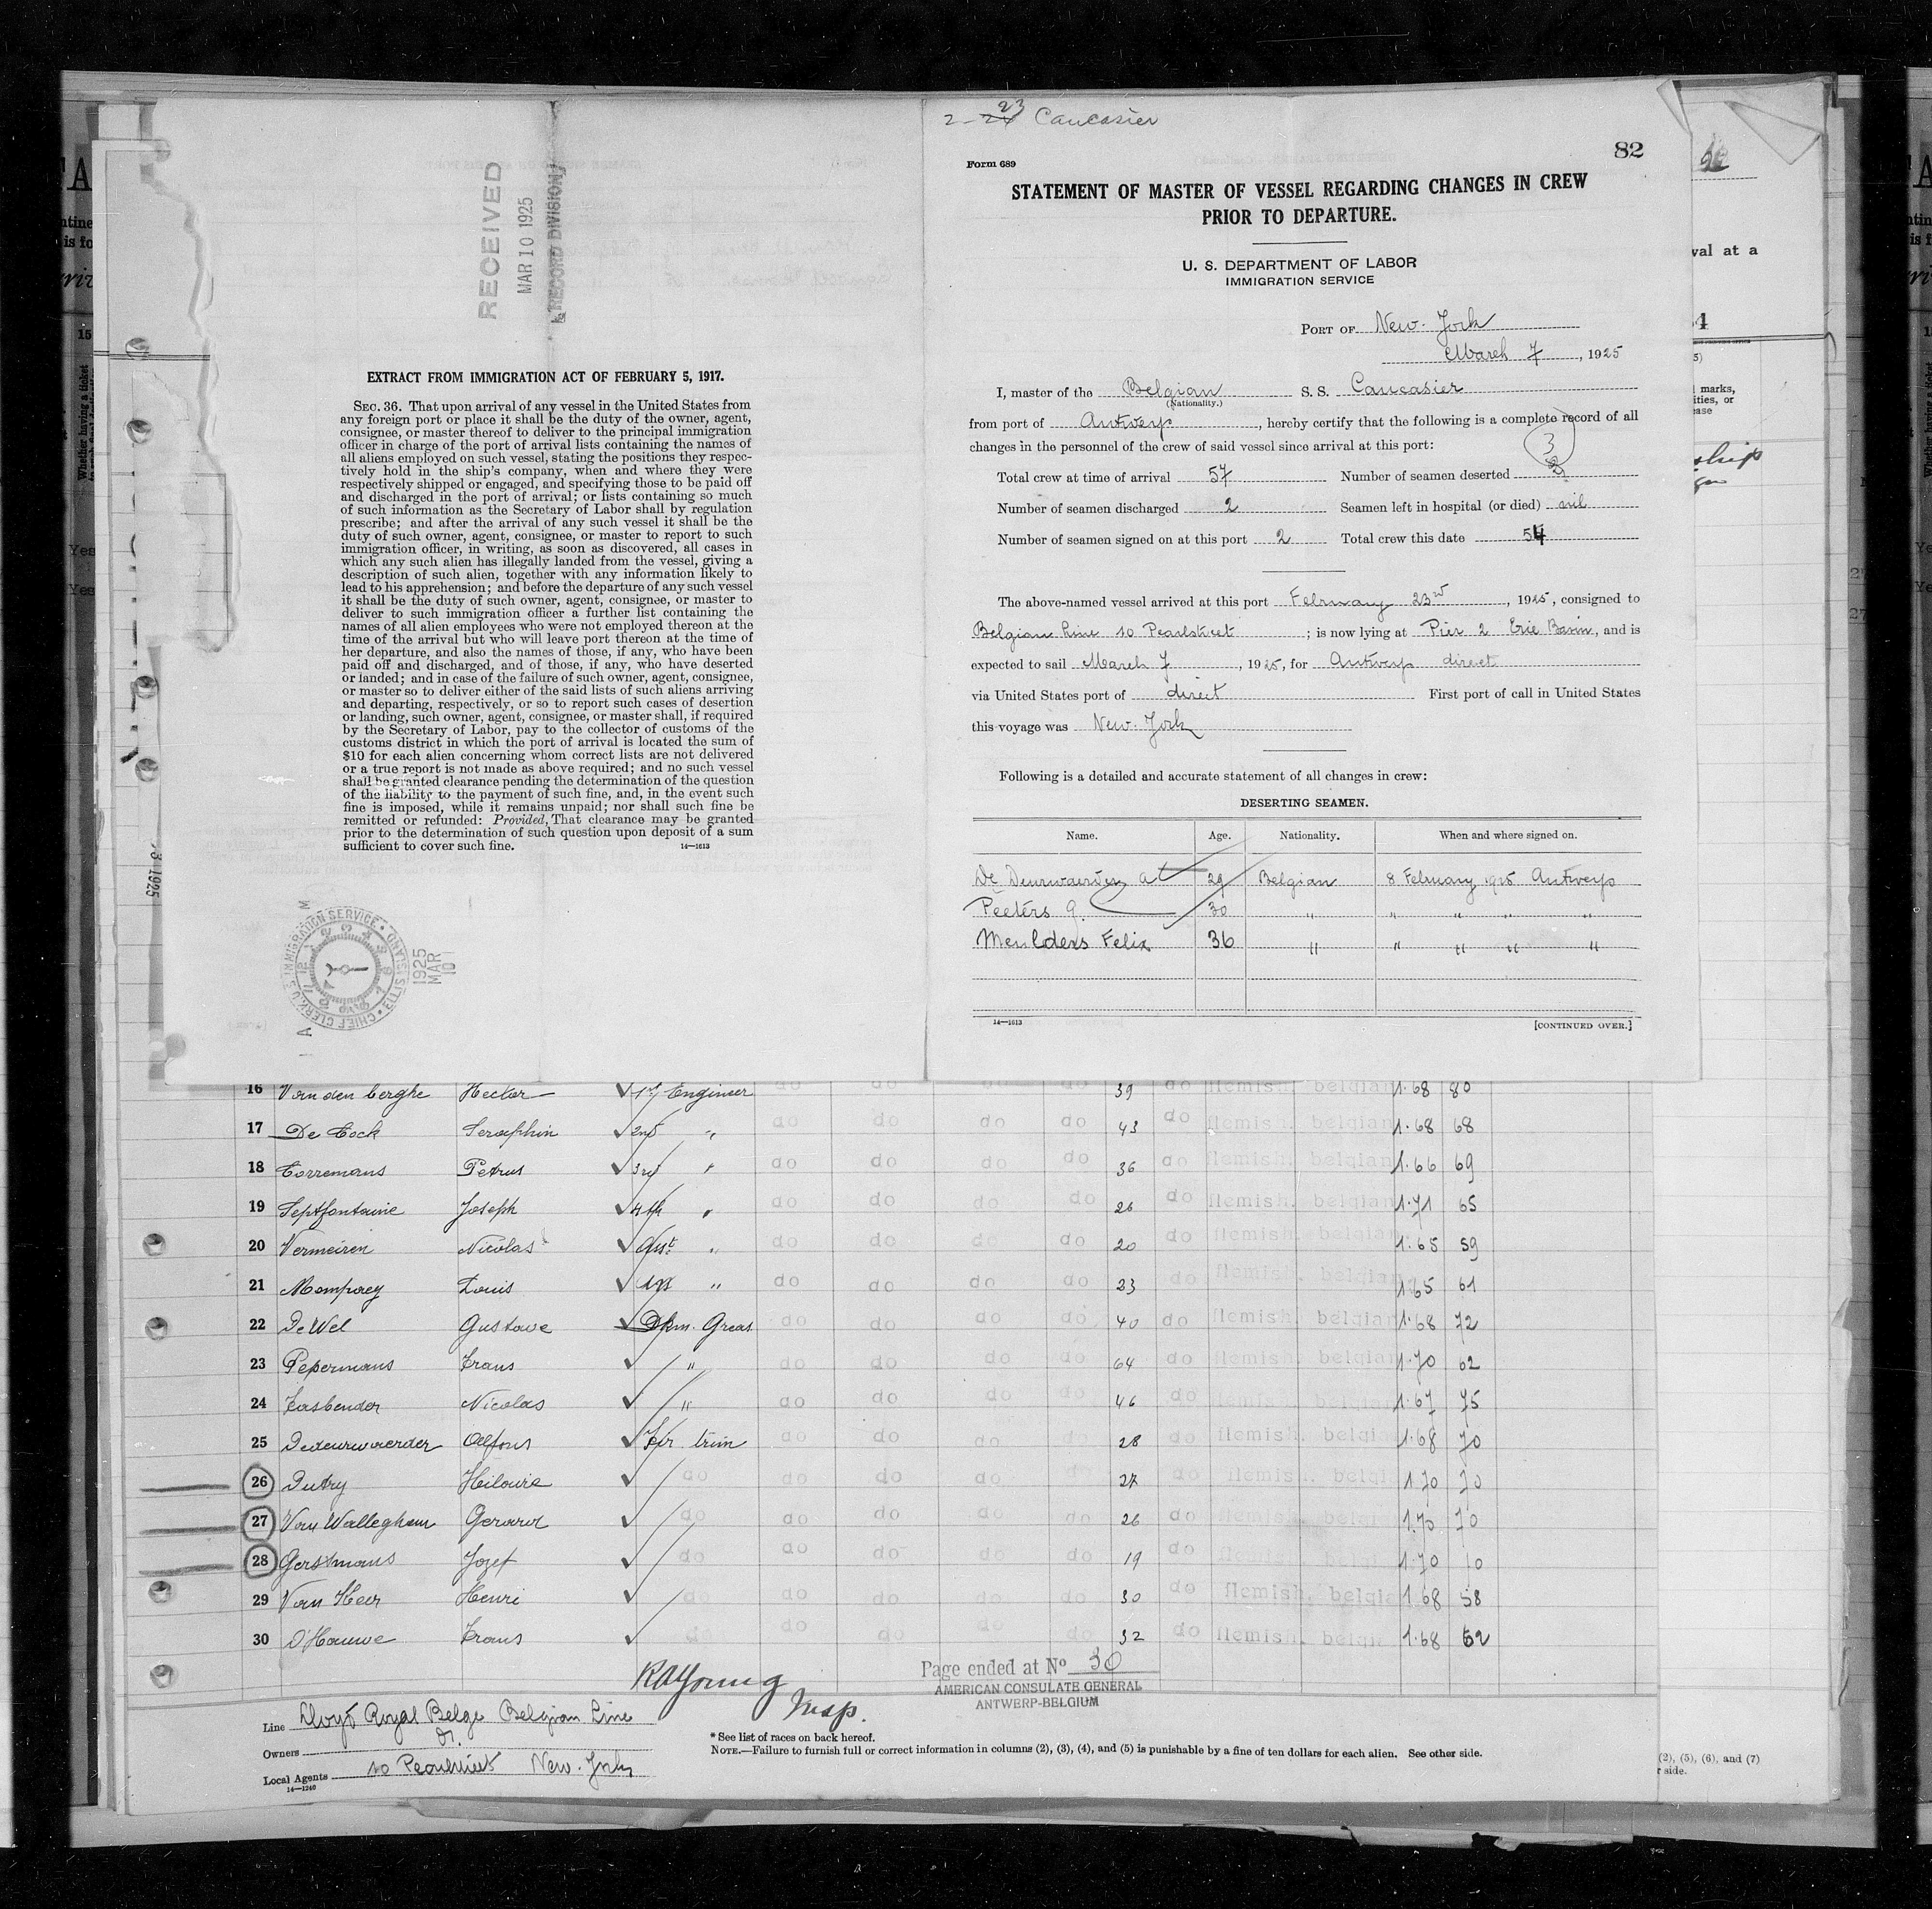 RECEIVED
MAR 10 1925
(RECORD DIVISION)
EXTRACT FROM IMMIGRATION ACT OF FEBRUARY 5, 1917.
SEC. 36. That upon arrival of any vessel in the United States from
any foreign port or place it shall be the duty of the owner, agent,
consignee, or master thereof to deliver to the principal immigration
officer in charge of the port of arrival lists containing the names of
all aliens employed on such vessel, stating the positions they respec-
tively hold in the ship's company, when and where they were
respectively shipped or engaged, and specifying those to be paid off
and discharged in the port of arrival; or lists containing so much
of such information as the Secretary of Labor shall by regulation
prescribe; and after the arrival of any such vessel it shall be the
duty of such owner, agent, consignee, or master to report to such
immigration officer, in writing, as soon as discovered, all cases in
which any such alien has illegally landed from the vessel, giving a
description of such alien, together with any information likely to
lead to his apprehension; and before the departure of any such vessel
it shall be the duty of such owner, agent, consignee, or master to
deliver to such immigration officer a further list containing the
names of all alien employees who were not employed thereon at the
time of the arrival but who will leave port thereon at the time of
her departure, and also the names of those, if any, who have been
paid off and discharged, and of those, if any, who have deserted
or landed; and in case of the failure of such owner, agent, consignee,
or master so to deliver either of the said lists of such aliens arriving
and departing, respectively, or so to report such cases of desertion
or landing, such owner, agent, consignee, or master shall, if required
by the Secretary of Labor, pay to the collector of customs of the
customs district in which the port of arrival is located the sum of
$10 for each alien concerning whom correct lists are not delivered
or a true report is not made as above required; and no such vessel
shall be granted clearance pending the determination of the question
of the liability to the payment of such fine, and, in the event such
fine is imposed, while it remains unpaid; nor shall such fine be
remitted or refunded: Provided, That clearance may be granted
prior to the determination of such question upon deposit of a sum
sufficient to cover such fine.
14—1613
CHIEF CLERK U.S. IMMIGRATION SERVICE • ELLIS ISLAND
1925
MAR
10
2-23 Caucasier
82
Form 689
STATEMENT OF MASTER OF VESSEL REGARDING CHANGES IN CREW
PRIOR TO DEPARTURE.
U. S. DEPARTMENT OF LABOR
IMMIGRATION SERVICE
PORT OF New-York
March 7, 1925
I, master of the Belgian S. S. Caucasier
(Nationality.)
from port of Antwerp, hereby certify that the following is a complete record of all
changes in the personnel of the crew of said vessel since arrival at this port:
Total crew at time of arrival 57 Number of seamen deserted 3
Number of seamen discharged 2 Seamen left in hospital (or died) nil
Number of seamen signed on at this port 2 Total crew this date 54
The above-named vessel arrived at this port February 23rd, 1925, consigned to
Belgian Line 10 Pearlstreet; is now lying at Pier 2 Erie Basin, and is
expected to sail March 7, 1925, for Antwerp direct
via United States port of direct First port of call in United States
this voyage was New-York
Following is a detailed and accurate statement of all changes in crew:
DESERTING SEAMEN.
Name. Age. Nationality. When and where signed on.
De Deurwaerder A 29 Belgian 8 February 1925 Antwerp
Peeters G. 30 " " " " "
Meulders Felix 36 " " " " "
14—1613 [CONTINUED OVER.]
16 Van den berghe Hector 1st Engineer do do do do 39 do flemish belgian 1.68 80
17 De Cock Seraphin 2nd " do do do do 43 do flemish. belgian 1.68 68
18 Corremans Petrus 3rd " do do do do 36 do flemish. belgian 1.66 69
19 Septfontaine Joseph 4th " do do do do 26 do flemish. belgian 1.71 65
20 Vermeiren Nicolas Asst " do do do do 20 do flemish. belgian 1.65 59
21 Mompaey Louis " do do do do 23 do flemish. belgian 1.65 61
22 De Wel Gustave Dkm. Greas do do do do 40 do flemish. belgian 1.68 72
23 Pepermans Frans " do do do do 64 do flemish. belgian 1.70 62
24 Fasbender Nicolas " do do do do 46 do flemish. belgian 1.67 75
25 Dedeurwaerder Alfons Fir. trim do do do do 28 do flemish. belgian 1.68 70
26 Dutry Hilaire do do do do 27 do flemish. belgi 1.70 70
27 Van Wallegham Gerard do do do do do 26 do flemish. belgi 1.70 70
28 Gerstmans Jozef do do do do do 19 do flemish. belgi 1.70 70
29 Van Heer Henri do do do do do 30 do flemish. belgia 1.68 58
30 D'Hauwe Frans do do do do do 32 do flemish. belgia 1.68 62
RAYoung
Insp.
Page ended at No 30
AMERICAN CONSULATE GENERAL
ANTWERP-BELGIUM
Line Lloyd Royal Belge Belgian Line
Owners do.
Local Agents 10 Pearlstreet New-York
14—1240
* See list of races on back hereof.
NOTE.—Failure to furnish full or correct information in columns (2), (3), (4), and (5) is punishable by a fine of ten dollars for each alien. See other side.
(2), (5), (6), and (7)
r side.
val at a
marks,
ities, or
ease
Whether having a ticket
3 1925